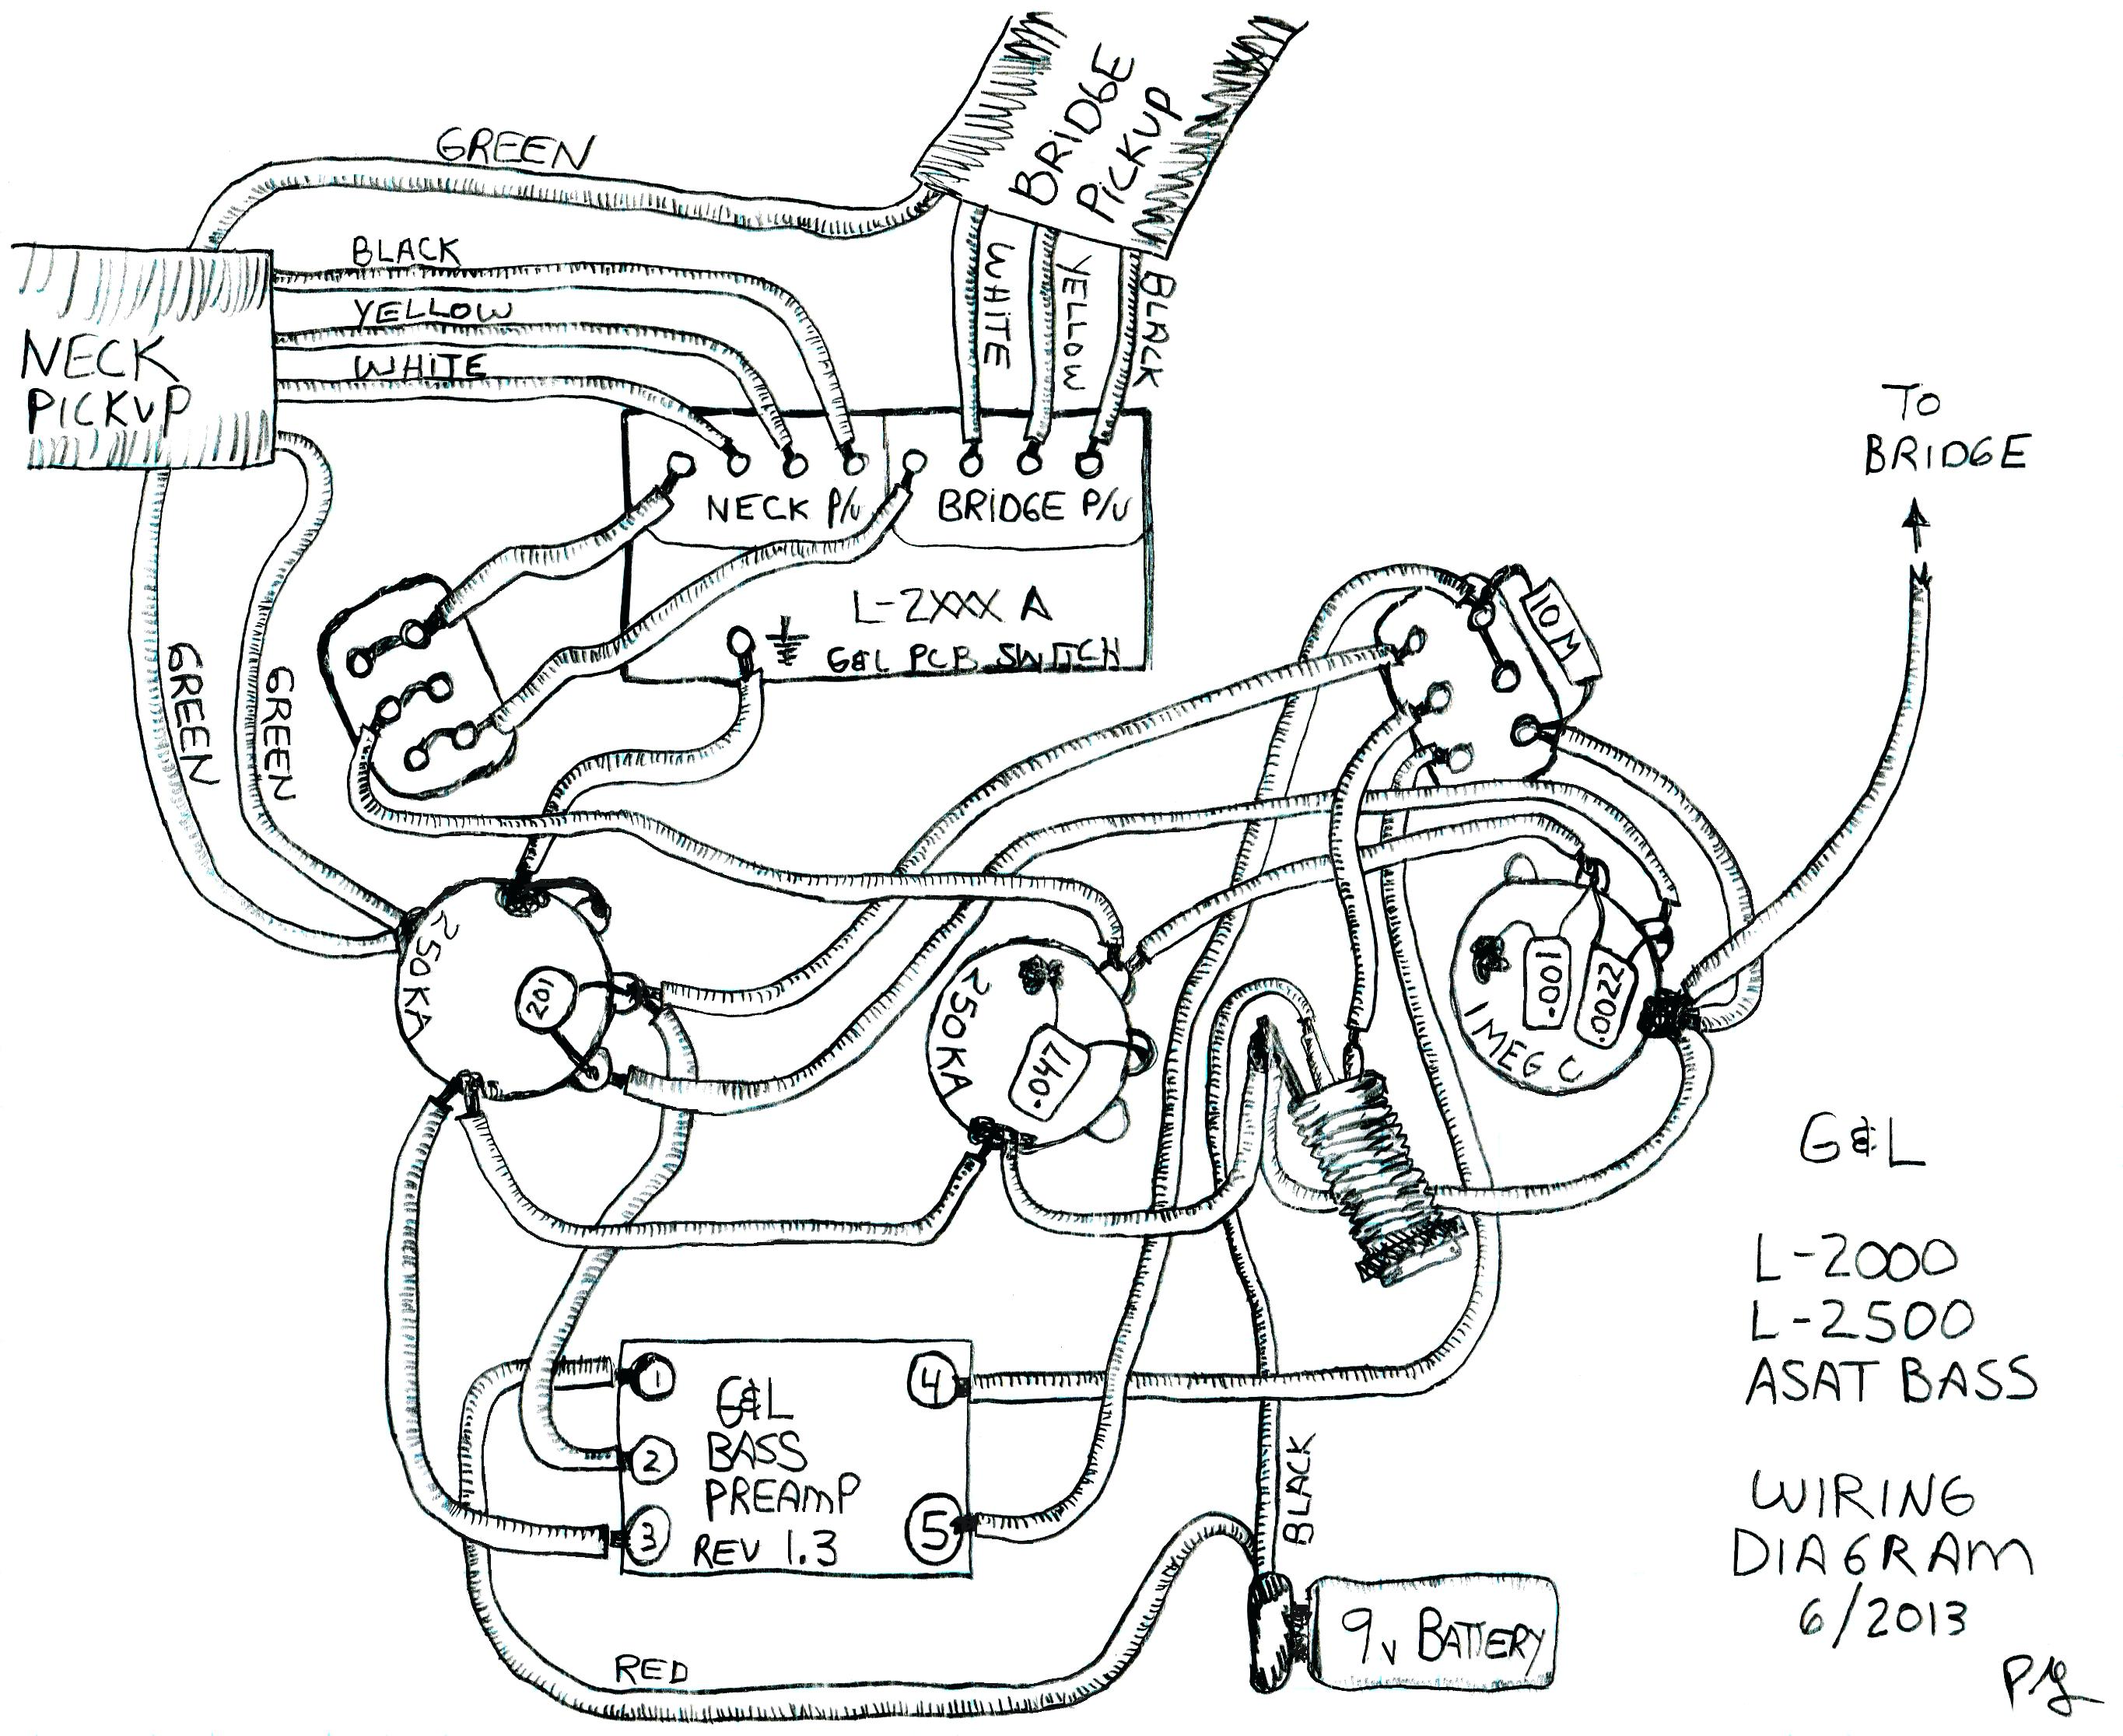 GREEN
BRIDGE
PICKUP
BLACK
YELLOW
WHITE
NECK
PICKUP
WHITE
YELLOW
BLACK
NECK P/U
BRIDGE P/U
L-2XXX A
G&L PCB SWITCH
GREEN
GREEN
10M
TO
BRIDGE
250KA
201
250KA
.047
.001
.0022
1MEG C
1
2
3
4
5
G&L
BASS
PREAMP
REV 1.3
RED
BLACK
9v BATTERY
G&L
L-2000
L-2500
ASAT BASS
WIRING
DIAGRAM
6/2013